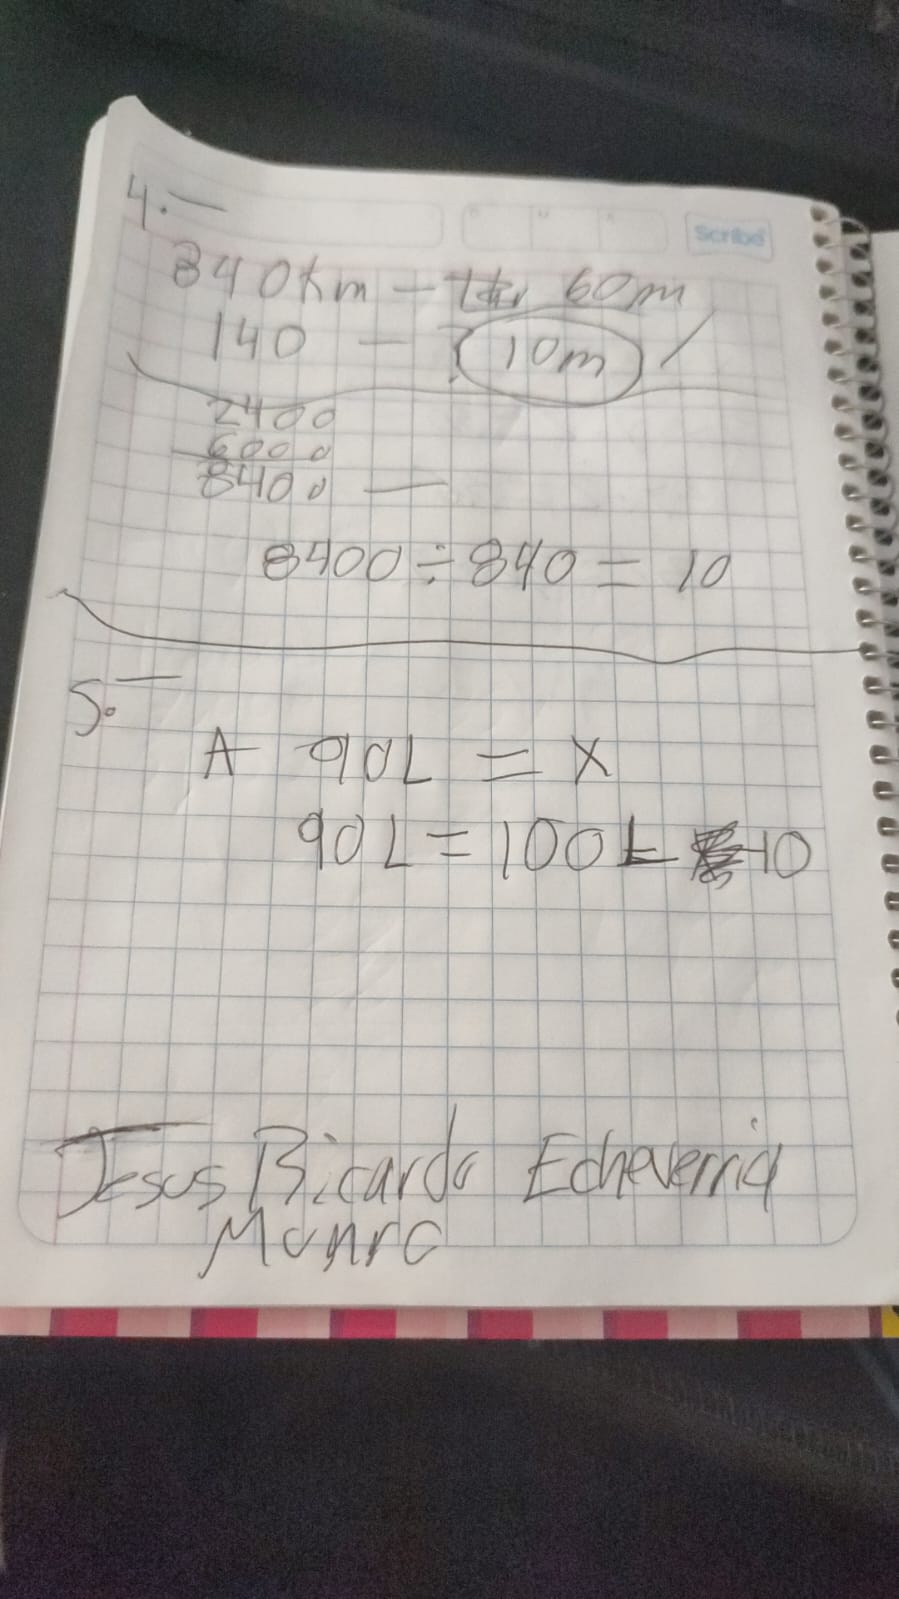 4.-
Scribe
840Km - 1hr 60m
140 - ? 10m /
2400
6000
8400 —
8400 ÷ 840 = 10
5.-
A 90L = X
90L = 100L 10
Jesus Ricardo Echeverria